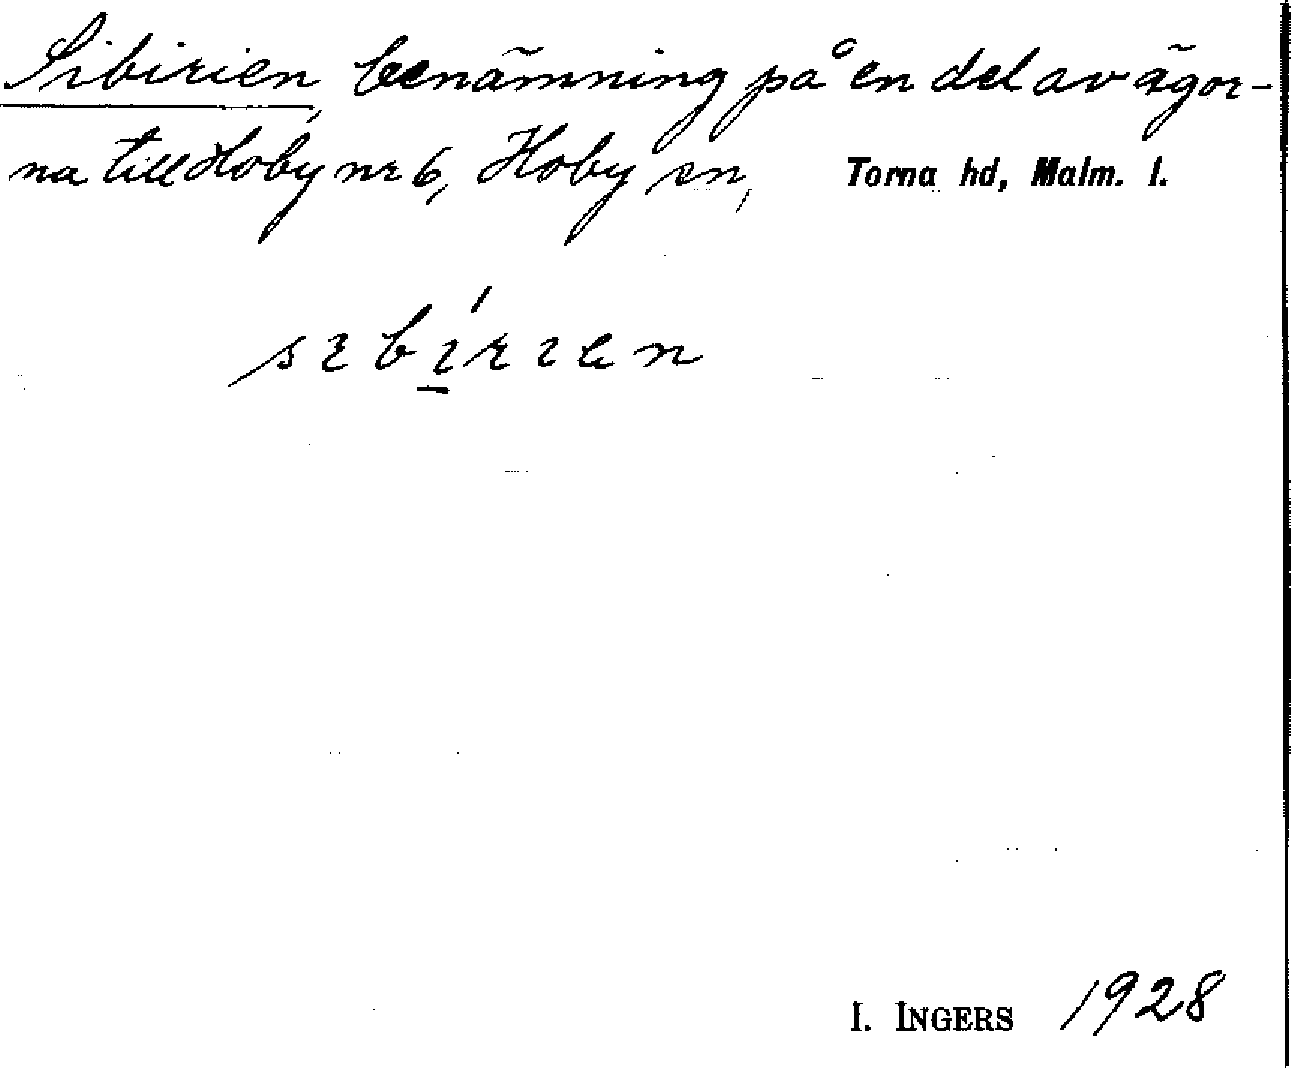 Sibirien, benämning på en del av ägor-
na till Hoby nr 6, Hoby sn, Torna hd, Malm. l.
sɩbɩ́rɩen
I. INGERS 1928